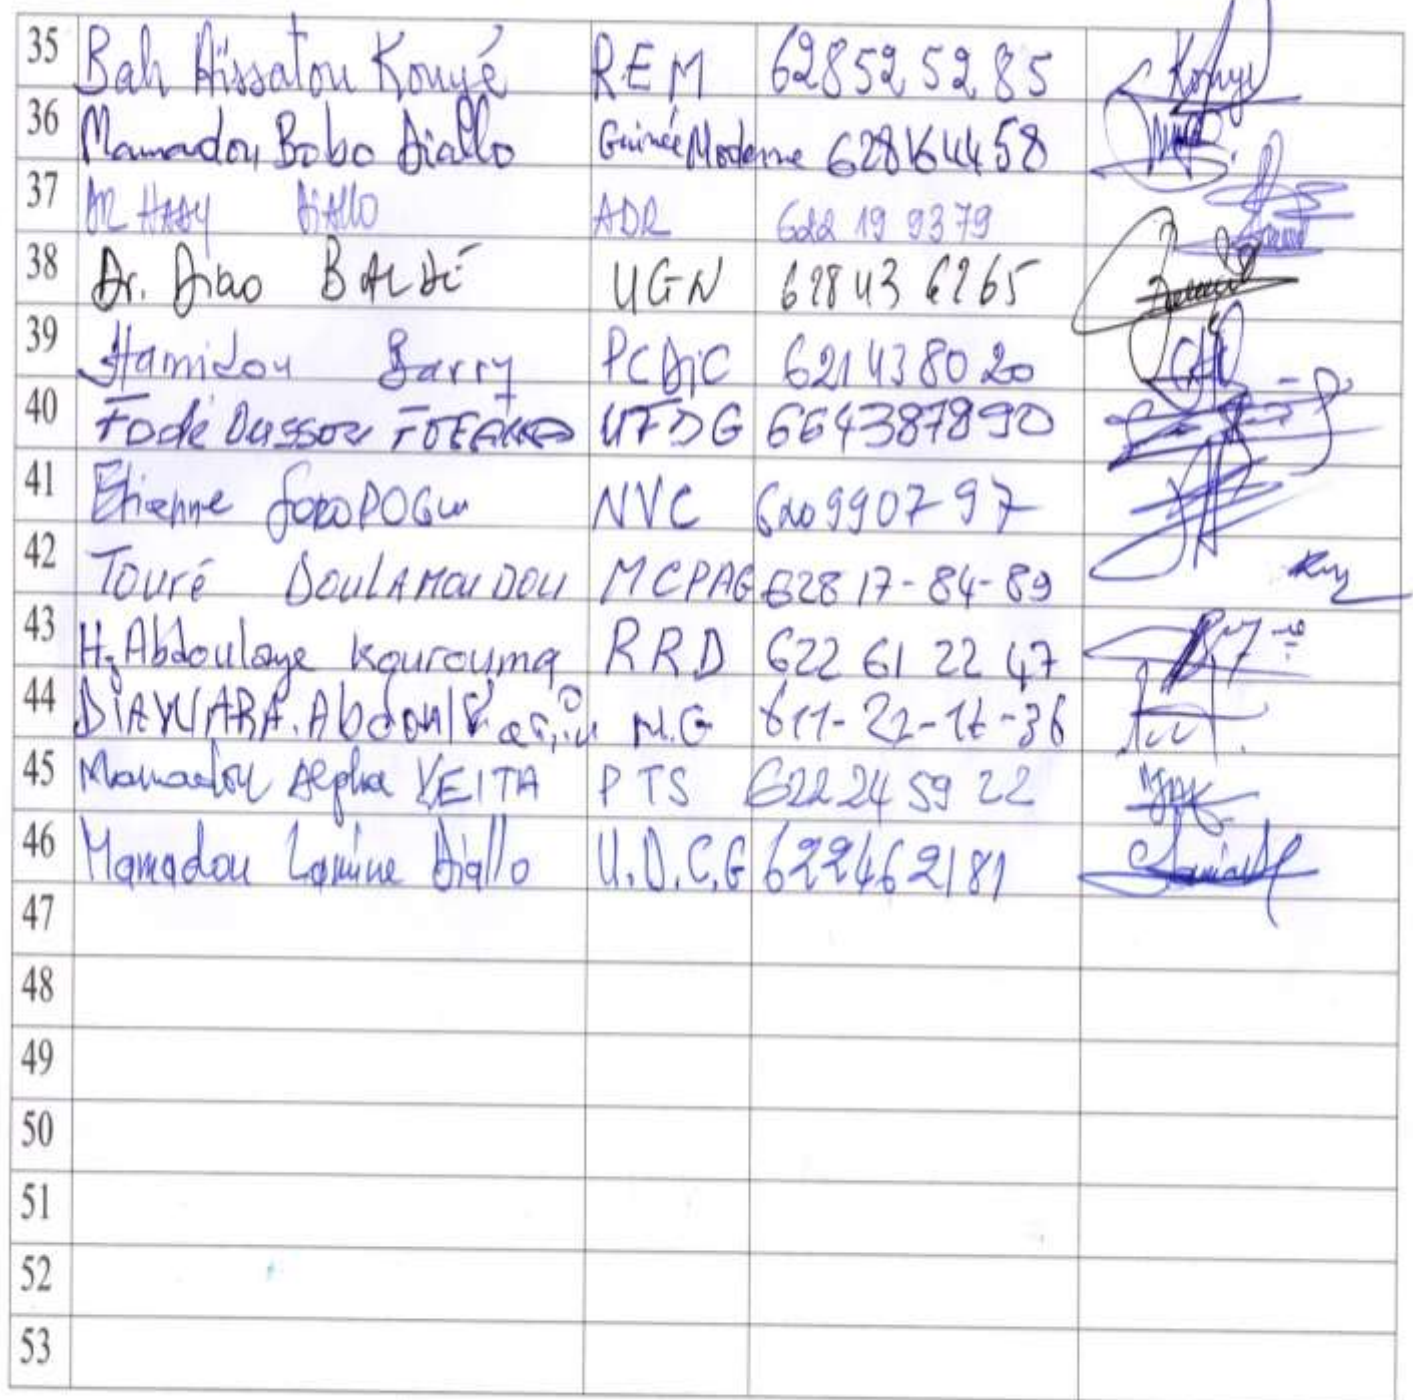 35 Bah Aïssatou Konyé REM 628525285
36 Mamadou Bobo Diallo Guinée Moderne 628164458
37 DIALLO ADR 622 19 9379
38 Dr. Diao BALDÉ UGN 628 43 6265
39 Hamidou Barry PCDIC 621 43 80 20
40 Fodé Oussou FOFANA UFDG 664387890
41 Etienne SOROPOGUI NVC 620 9907 97
42 Touré DOULAMOUDOU MCPAG 628 17-84-89
43 H. Abdoulaye Kourouma RRD 622 61 22 47
44 DIAWARA. M.G 611-22-16-36
45 Mamadou Alpha KEITA PTS 622 24 59 22
46 Mamadou Lamine Diallo U.D.C.G 622462181
47
48
49
50
51
52
53